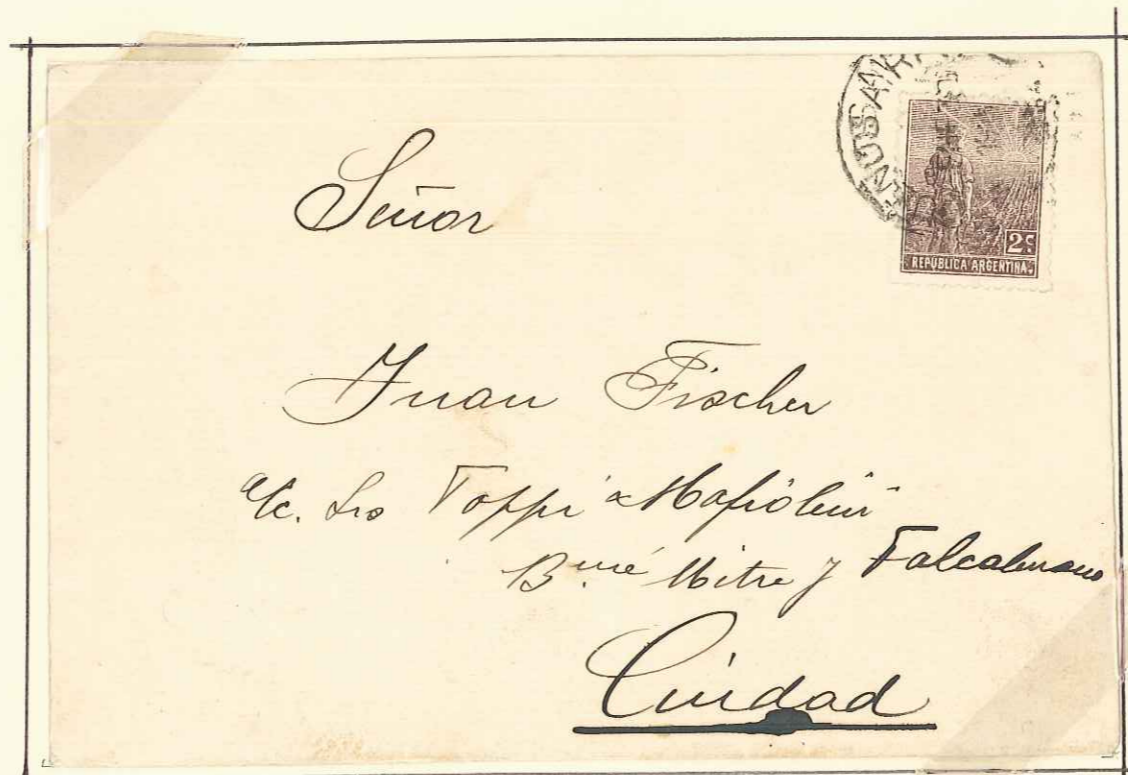 BUENOS AIRES
2c
REPUBLICA ARGENTINA
Señor
Juan Fischer
a/c. Srs Toppi &
Bmé Mitre y Talcahuano
Ciudad